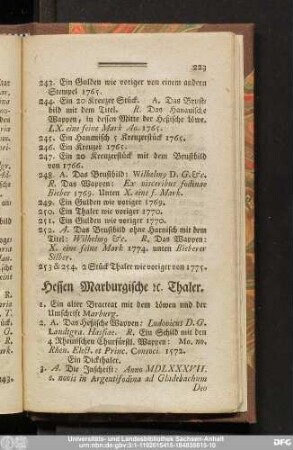 223
243. Ein Gulden wie voriger von einem andern
Stempel 1765.
244. Ein 20 Kreuzer Stück. A. Das Brust-
bild mit dem Titel. R. Das Hanauische
Wappen, in dessen Mitte der Hessische löwe.
LX. eine feine Mark Ao. 1765.
245. Ein Hanauisch 5 Kreuzerstück 1765.
246. Ein Kreuzer 1765.
247. Ein 20 Kreuzerstück mit dem Brustbild
von 1766.
248. A. Das Brustbild: Wilhelmg D. G. &c.
R. Das Wappen: Ex visceribus fodinae
Bieber 1769. Unten X. eine f. Mark.
249. Ein Gulden wie voriger 1769.
250. Ein Thaler wie voriger 1770.
251. Ein Gulden wie voriger 1770.
252. A. Das Brustbild ohne Harnisch mit dem
Titel: Wilhelmg &c. R. Das Wappen:
X. eine feine Mark 1774. unten Bieberer
Silber.
253 & 254. 2 Stück Thaler wie voriger von 1775.
Hessen Marburgische ꝛc. Thaler.
1. Ein alter Bracteat mit dem löwen und der
Umschrift Marburg.
2. A. Das Hessische Wappen: Ludovicus D. G.
Landgra. Hassiae. R. Ein Schild mit den
4 Rheinischen Churfürstl. Wappen: Mo. no.
Rhen. Elect. et Princ. Consoc. 1572.
Ein Dickthaler.
3. A. Die Inschrift: Anno MDLXXXVII.
in Argentifodina ad Gladebachum
Deo
Universitäts- und Landesbibliothek Sachsen-Anhalt
DFG